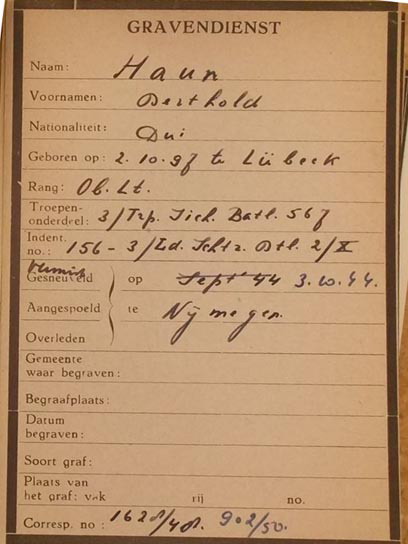 GRAVENDIENST
Naam: Haun
Voornamen: Berthold
Nationaliteit: Dui
Geboren op: 2.10.97 te Lübeck
Rang: Ob. Lt.
Troepen-
onderdeel: 3/Trp. Sich. Batl. 567
Indent.
no.: 156 - 3/Ld. Schtz. Btl. 2/X
Vermist
Gesneuveld op Sept '44 3.10.44.
Aangespoeld te Nijmegen.
Overleden
Gemeente
waar begraven:
Begraafplaats:
Datum
begraven:
Soort graf:
Plaats van
het graf: vak rij no.
Corresp. no: 1628/48. 902/50.